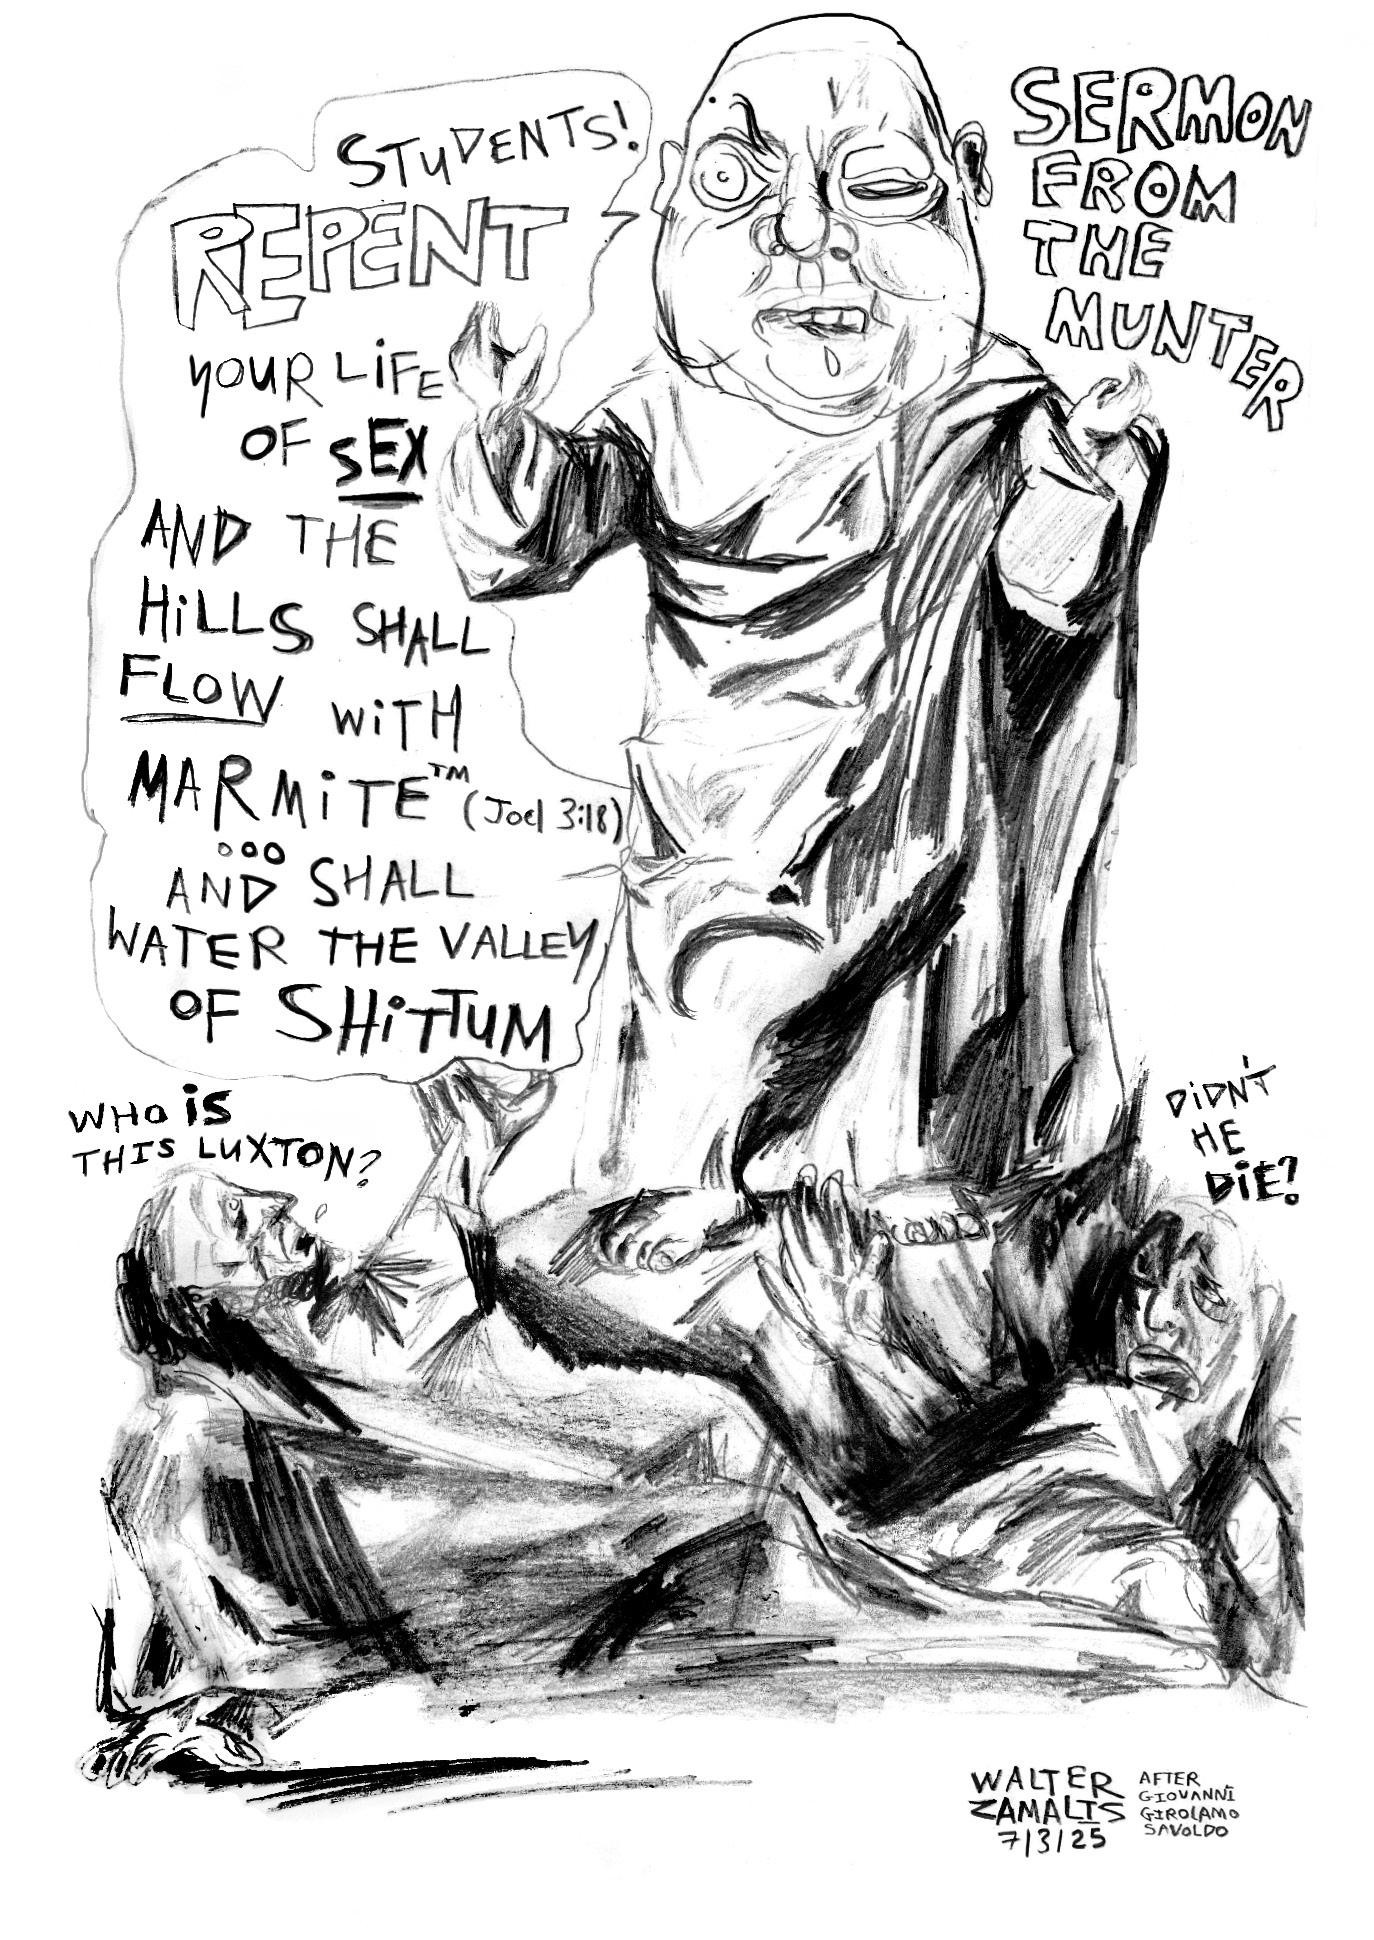 STUDENTS!
REPENT
YOUR LiFE
OF SEX
AND THE
HiLLS SHALL
FLOW WiTH
MARMiTE™ (Joel 3:18)
...
AND SHALL
WATER THE VALLEY
OF SHiTTUM
SERMON
FROM
THE
MUNTER
WHO iS
THIS LUXTON?
DiDN'T
HE
DiE?
WALTER
ZAMALIS
7/3/25
AFTER
GIOVANNI
GIROLAMO
SAVOLDO